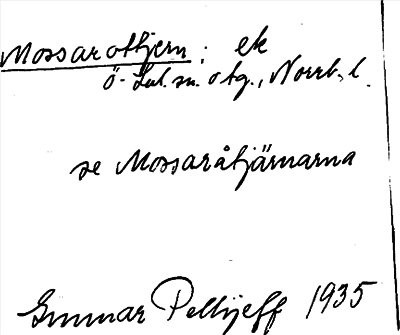 Mossarotjern; ek
Ö. Lul. sn. o tg., Norrb. l.
se Mossaråtjärnarna
Gunnar Pellijeff 1935